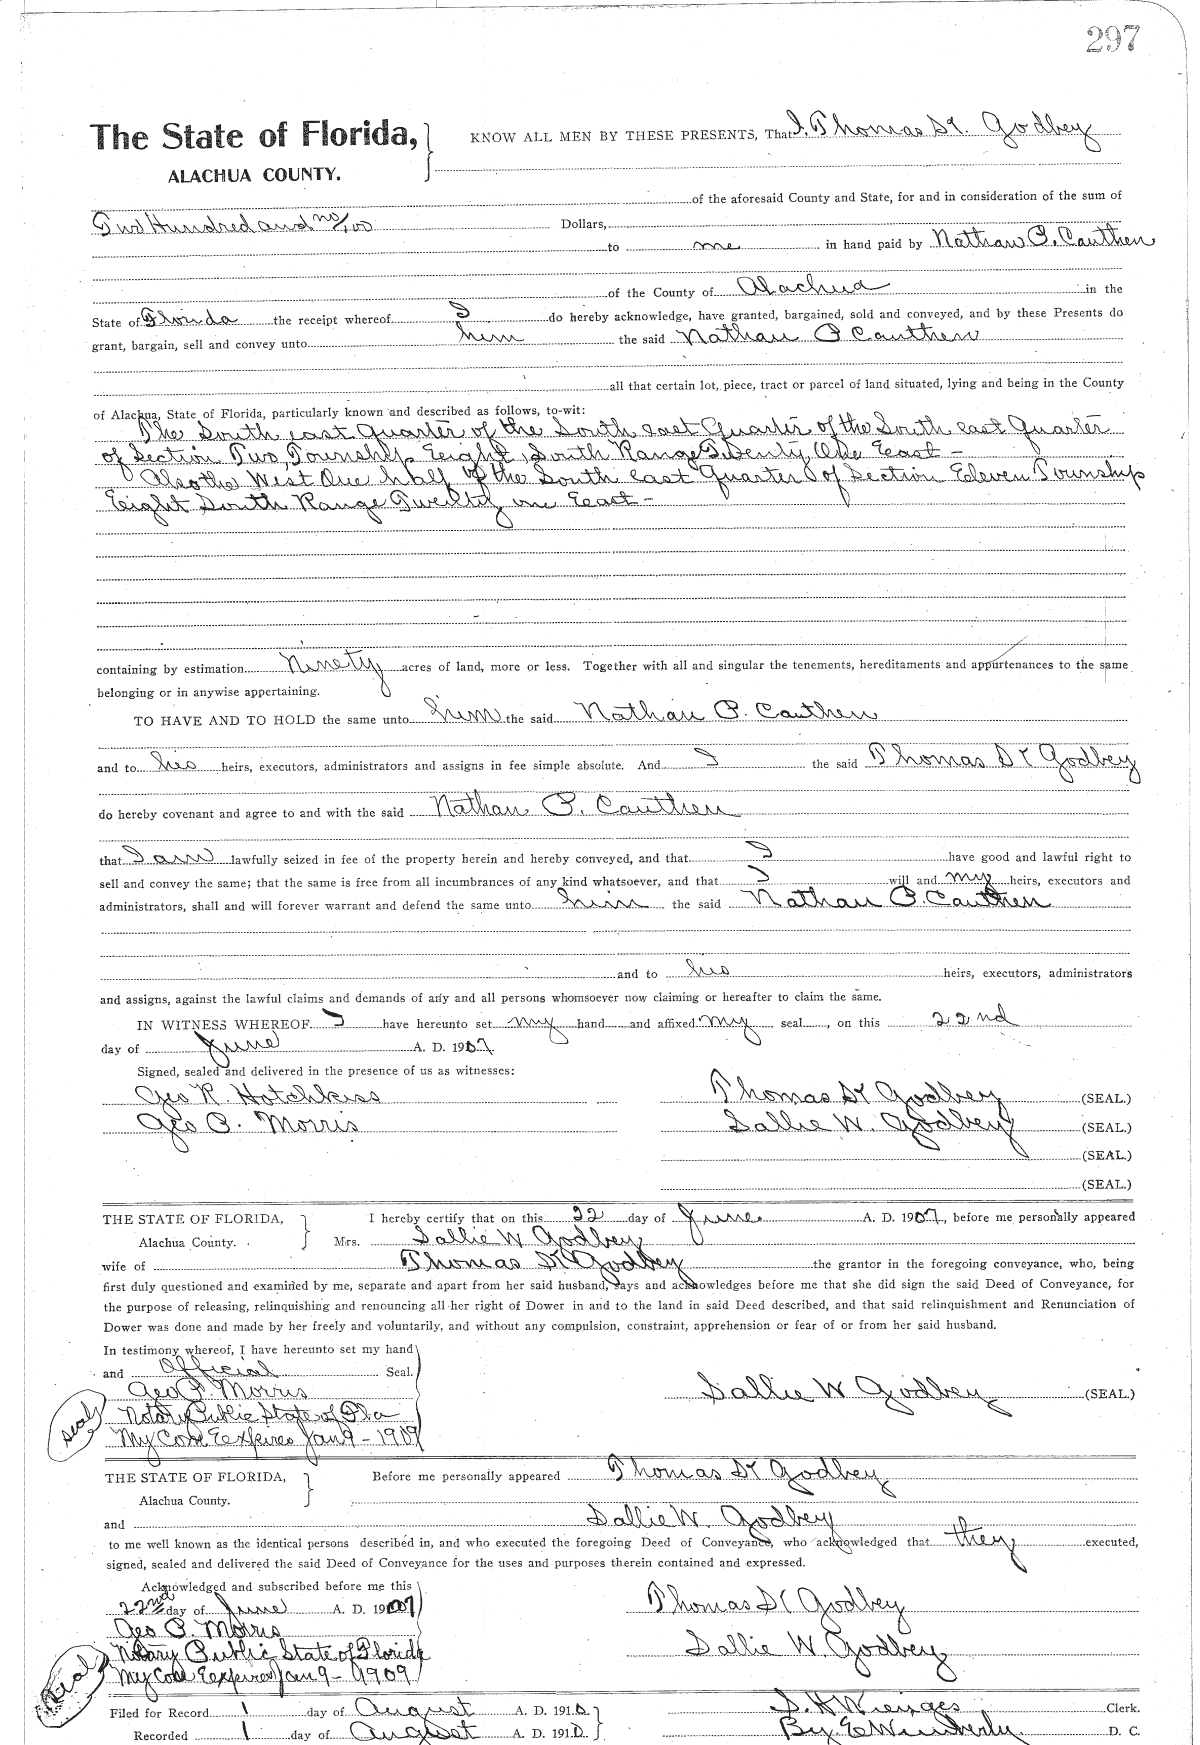 297
The State of Florida, KNOW ALL MEN BY THESE PRESENTS, That I, Thomas St. Godbey
ALACHUA COUNTY.
of the aforesaid County and State, for and in consideration of the sum of
Two Hundred and no/100 Dollars,
to me in hand paid by Nathan P. Cauthen
of the County of Alachua in the
State of Florida the receipt whereof I do hereby acknowledge, have granted, bargained, sold and conveyed, and by these Presents do
grant, bargain, sell and convey unto him the said Nathan P Cauthen
all that certain lot, piece, tract or parcel of land situated, lying and being in the County
of Alachua, State of Florida, particularly known and described as follows, to-wit:
The South east Quarter of the South east Quarter of the South east Quarter
of Section Two, Township Eeight, South Range Twenty One East —
Also the West One half of the South east Quarter of Section Eleven Township
Eeight South Range Twenty one East —
containing by estimation Ninety acres of land, more or less. Together with all and singular the tenements, hereditaments and appurtenances to the same
belonging or in anywise appertaining.
TO HAVE AND TO HOLD the same unto him the said Nathan P. Cauthen
and to his heirs, executors, administrators and assigns in fee simple absolute. And I the said Thomas St Godbey
do hereby covenant and agree to and with the said Nathan P. Cauthen
that I am lawfully seized in fee of the property herein and hereby conveyed, and that I have good and lawful right to
sell and convey the same; that the same is free from all incumbrances of any kind whatsoever, and that I will and my heirs, executors and
administrators, shall and will forever warrant and defend the same unto him the said Nathan P. Cauthen
and to his heirs, executors, administrators
and assigns, against the lawful claims and demands of any and all persons whomsoever now claiming or hereafter to claim the same.
IN WITNESS WHEREOF I have hereunto set my hand and affixed my seal, on this 22nd
day of June A. D. 1907
Signed, sealed and delivered in the presence of us as witnesses:
Geo R. Hotchkiss Thomas St Godbey (SEAL.)
Geo P. Morris Sallie W. Godbey (SEAL.)
(SEAL.)
(SEAL.)
THE STATE OF FLORIDA, I hereby certify that on this 22 day of June A. D. 1907, before me personally appeared
Alachua County. Mrs. Sallie W Godbey
wife of Thomas St Godbey the grantor in the foregoing conveyance, who, being
first duly questioned and examined by me, separate and apart from her said husband, says and acknowledges before me that she did sign the said Deed of Conveyance, for
the purpose of releasing, relinquishing and renouncing all her right of Dower in and to the land in said Deed described, and that said relinquishment and Renunciation of
Dower was done and made by her freely and voluntarily, and without any compulsion, constraint, apprehension or fear of or from her said husband.
In testimony whereof, I have hereunto set my hand
and Official Seal.
Geo P Morris Sallie W Godbey (SEAL.)
seal Notary Public State of Fla
My Com Eexpires Jan 9 - 1909
THE STATE OF FLORIDA, Before me personally appeared Thomas St Godbey
Alachua County.
and Sallie W. Godbey
to me well known as the identical persons described in, and who executed the foregoing Deed of Conveyance, who acknowledged that they executed,
signed, sealed and delivered the said Deed of Conveyance for the uses and purposes therein contained and expressed.
Acknowledged and subscribed before me this
22nd day of June A. D. 1907 Thomas St Godbey
Geo P. Morris
Notary Public State of Florida Sallie W. Godbey
seal My Com Eexpires Jan 9 - 1909
Filed for Record 1 day of August A. D. 1910. S. H Wienges Clerk.
Recorded 1 day of August A. D. 1910. By. E Wimberly D. C.